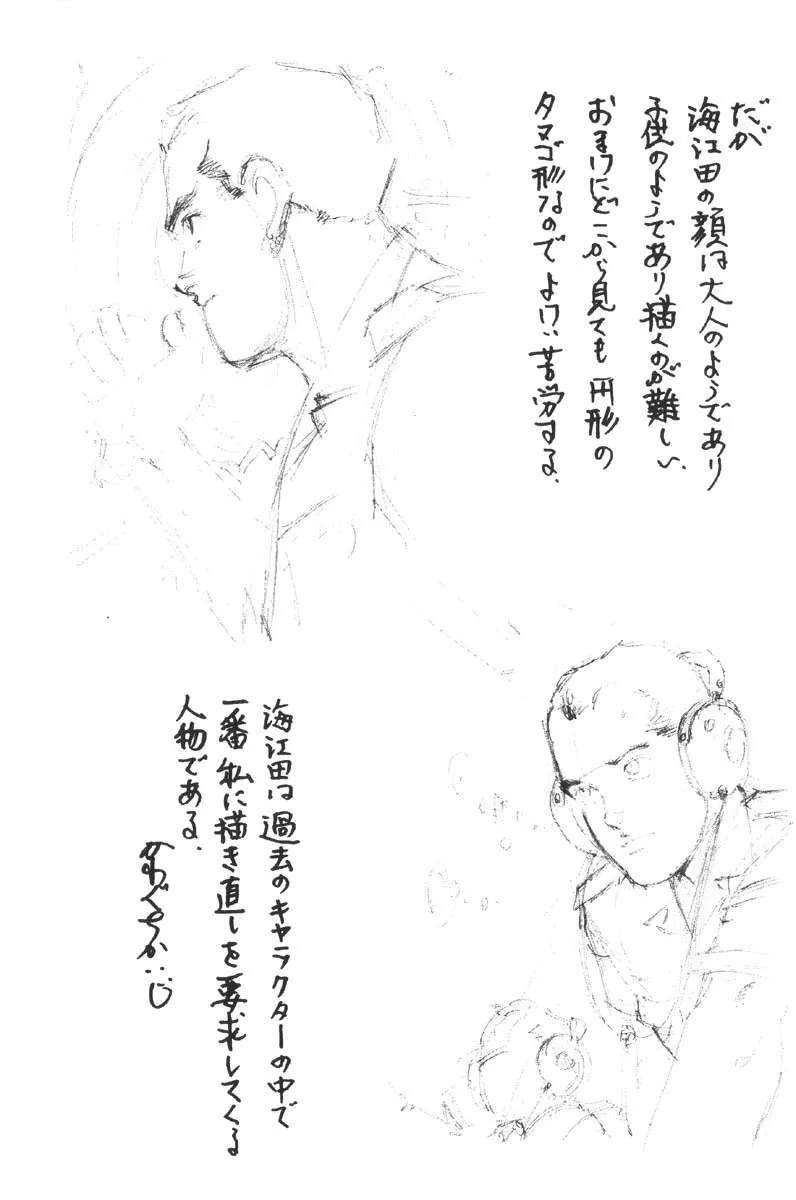 だが
海江田の顔は大人のようであり
子供のようであり描くのが難しい、
おまけにどこから見ても円形の
タマゴ形なのでよけい苦労する、
海江田は過去のキャラクターの中で
一番私に描き直しを要求してくる
人物である、
かわぐちかいじ